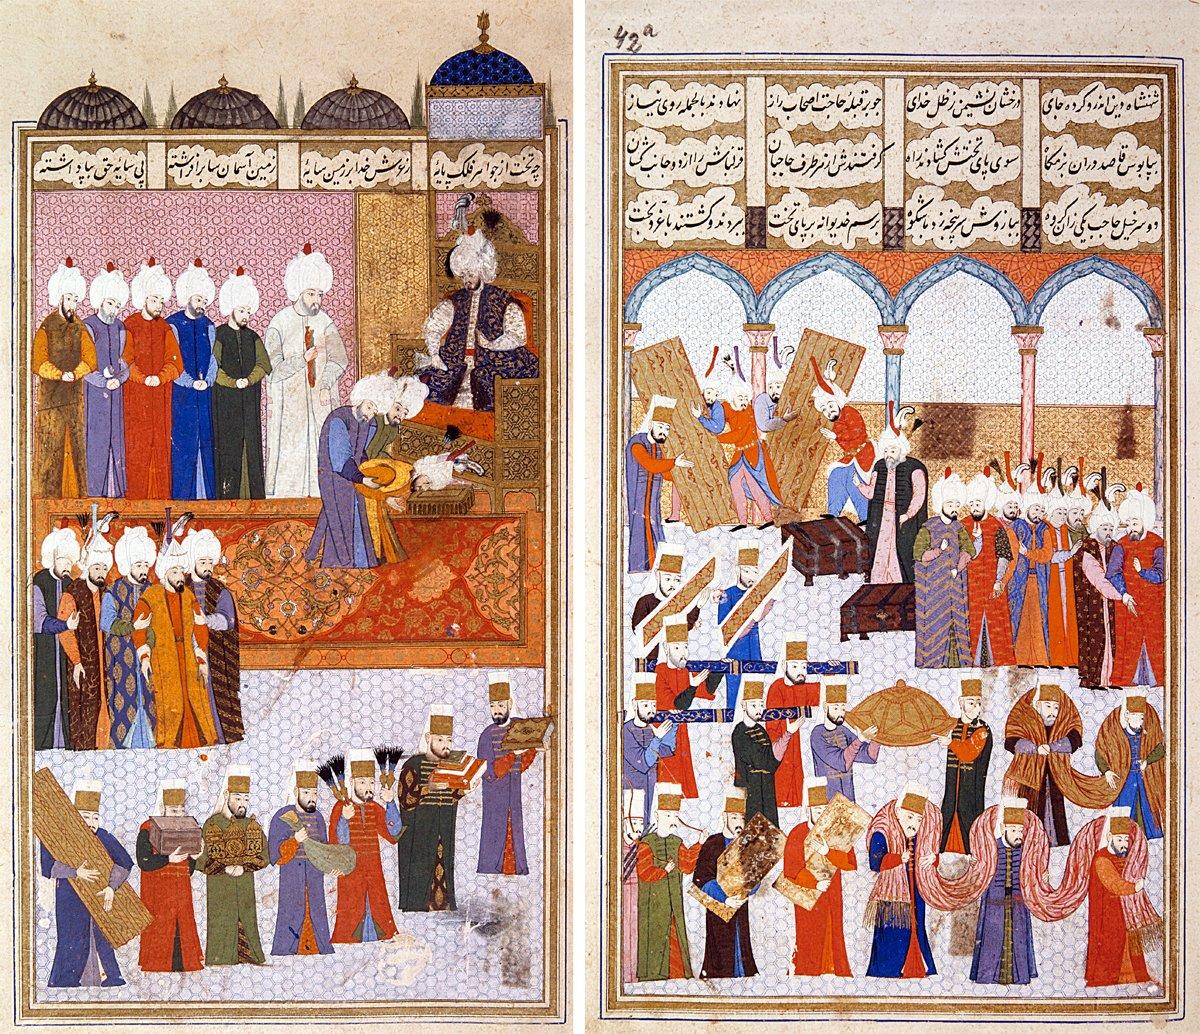 چه تخت از جواهر فلک پایهٔ ز عرش خدا بر زمین سایهٔ زمین آسمان سا برافراشته پی سایهٔ حق بپا داشته
42a
شهنشاه دین اندرو کرده جای درخشان نشیمن ز ظل خدای چو بر قبلهٔ حاجت اصحاب راز نهادند بالجمله روی نیاز
بپابوس قاصد دران بزمگاه سوی پای تختش گشادند راه گرفتندش از هر طرف حاجبان قزلباش را از دو جانب کشان
دو سرخیل حاجب یکی زان گروه ببازوش سرپنجه زد باشکوه برسم خدیوانه بر پای تخت ببردند و گشتند بخت